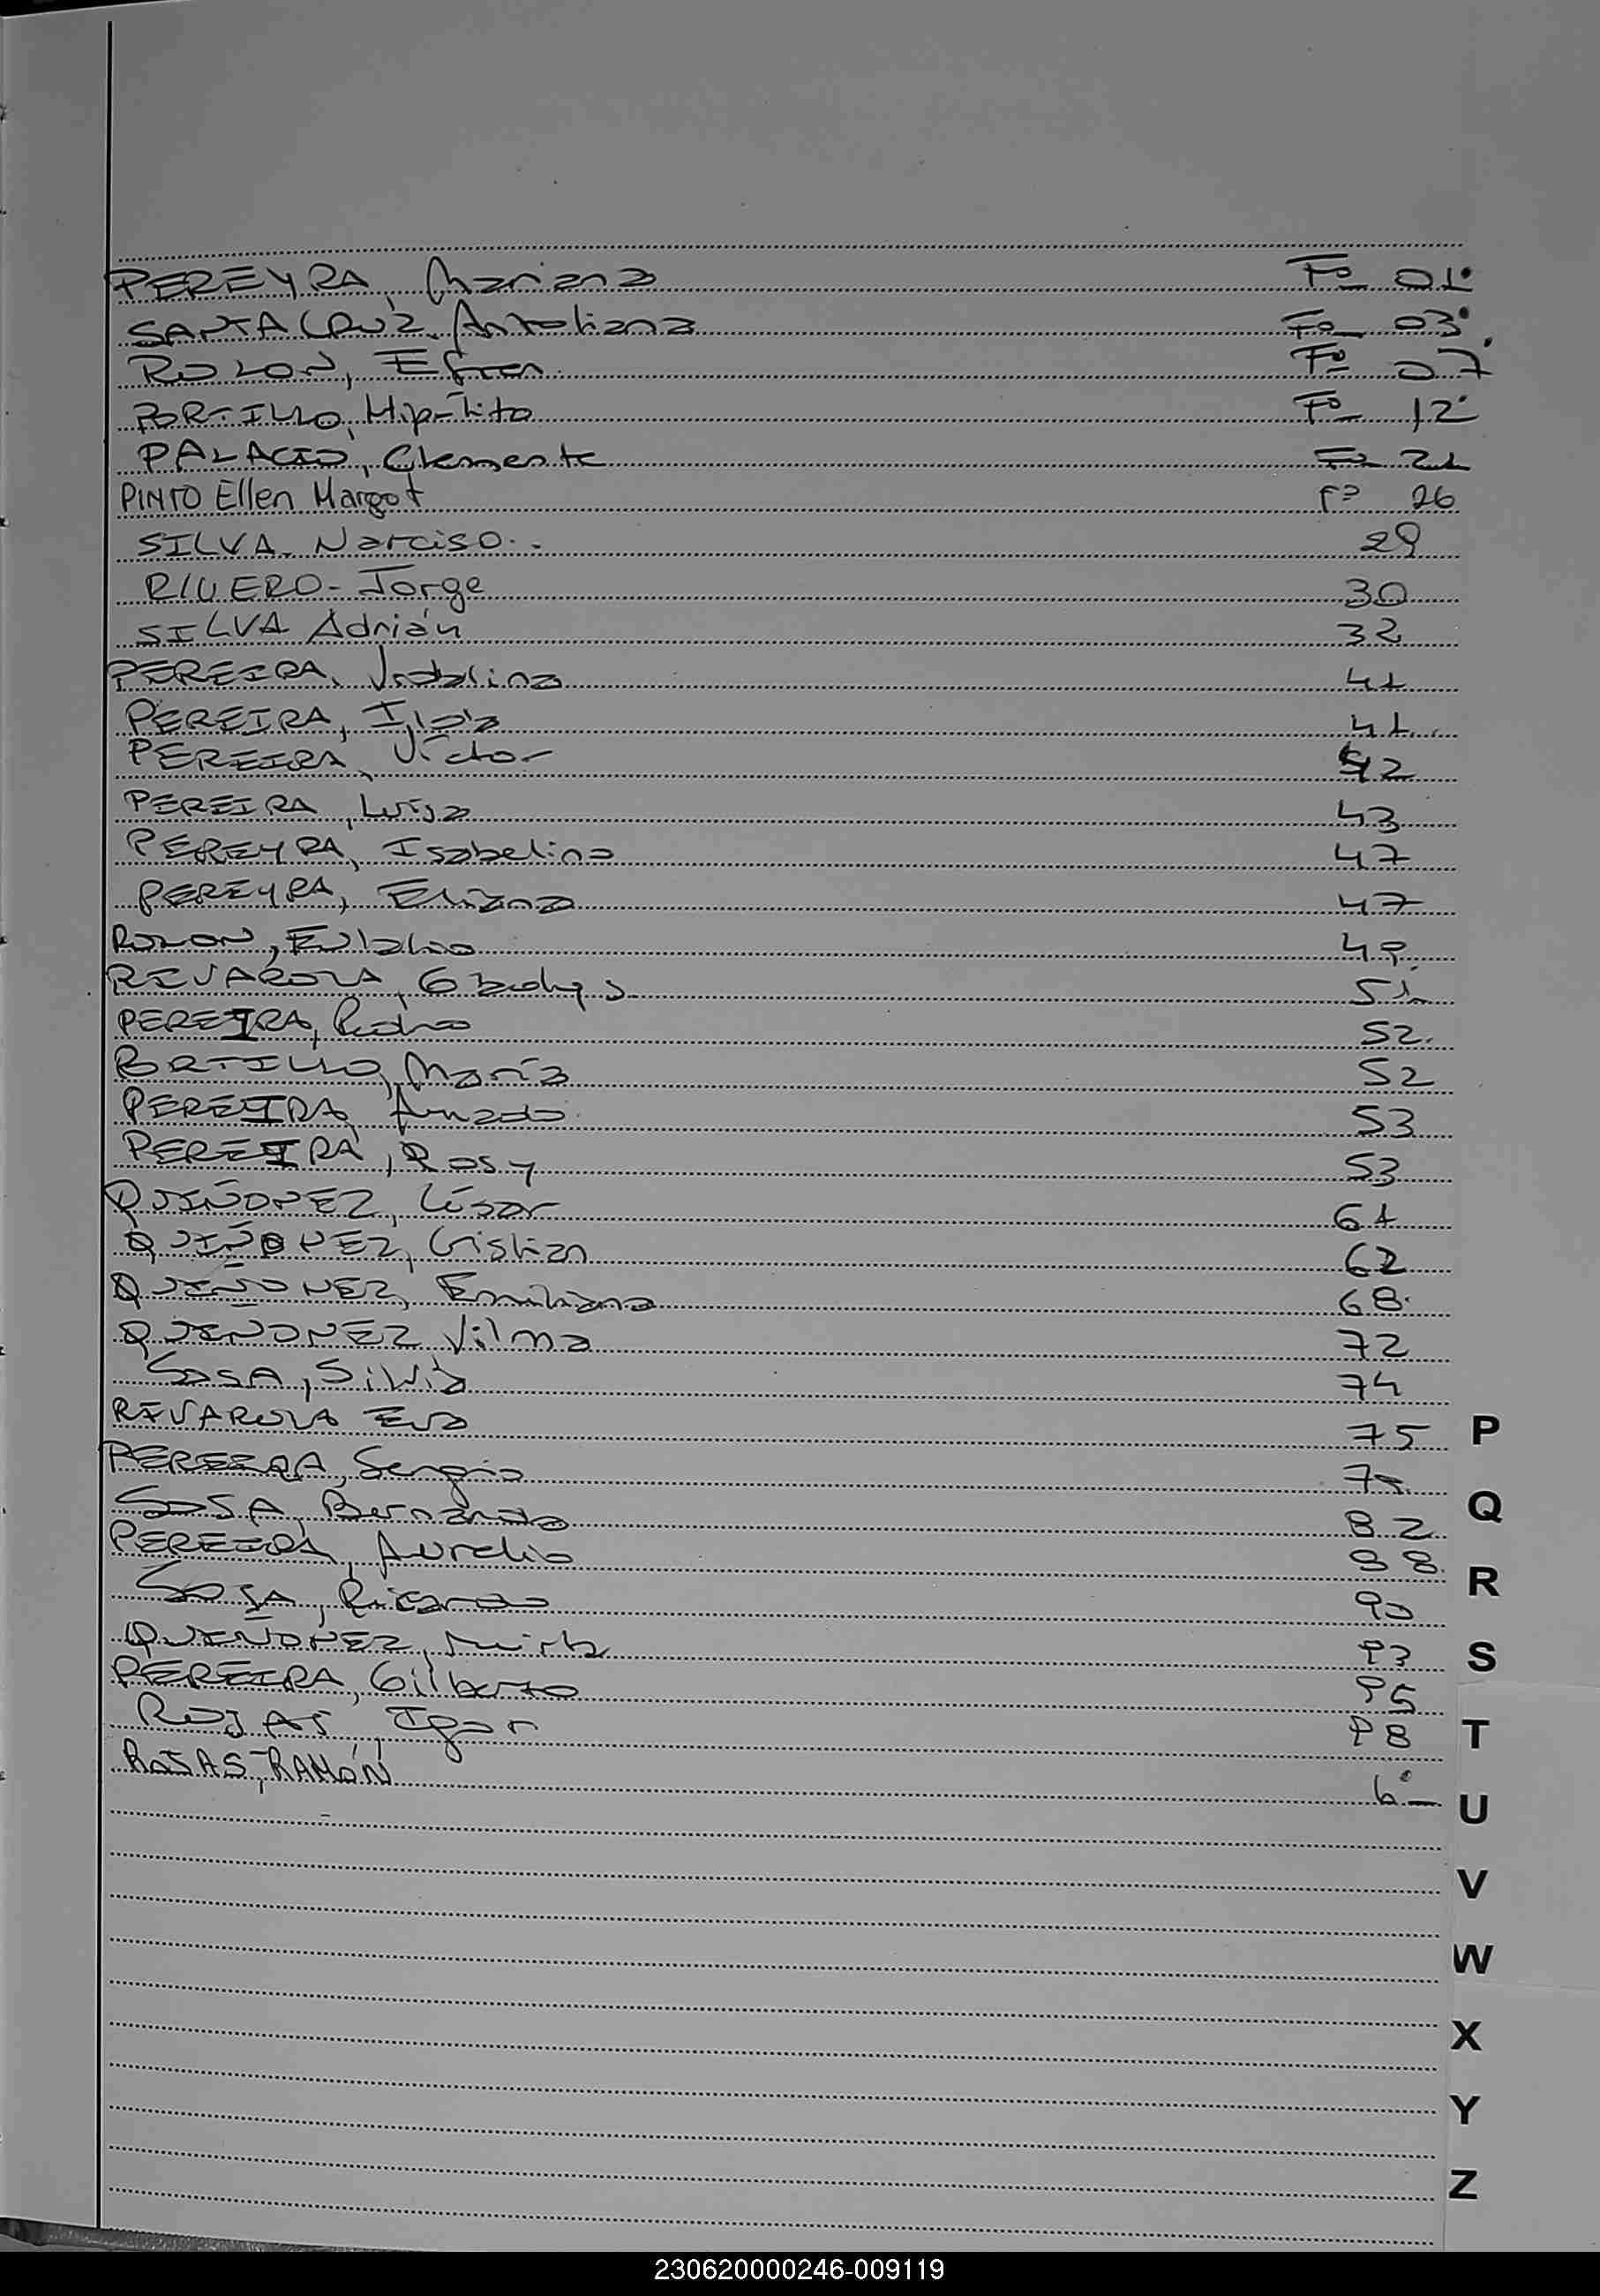 PEREYRA, Mariana Fo 01
SANTACRUZ, Antoliana Fo 03
ROLON, Efren Fo 07
PORTILLO, Hipólito Fo 12
PALACIO, Clemente Fo 21
PINTO Ellen Margot Fo 26
SILVA. Narciso.. 29
RIVERO - Jorge 30
SILVA Adrián 32
PEREIRA, 41
PEREIRA, 41
PEREIRA, Víctor 42
PEREIRA, Luisa 43
PEREYRA, Isabelino 47
PEREYRA, Eliana 47
ROLON, Eulalio 49
RIVAROLA, Gladys 51
PEREIRA, Pedro 52
PORTILLO, María 52
PEREIRA, Amado 53
PEREIRA, Rosy 53
QUIÑONEZ, César 61
QUIÑONEZ, Cristian 62
QUIÑONEZ, Emiliana 68
QUIÑONEZ Vilma 72
SOSA, Silvia 74
RIVAROLA Eva 75
PEREIRA, Sergio 75
SOSA, Bernardo 82
PEREIRA, Aurelio 88
SOSA, Ricardo 90
QUIÑONEZ, Mirta 93
PEREIRA, Gilberto 95
ROJAS, Igor 98
ROJAS, RAMÓN 6
P
Q
R
S
T
U
V
W
X
Y
Z
230620000246-009119